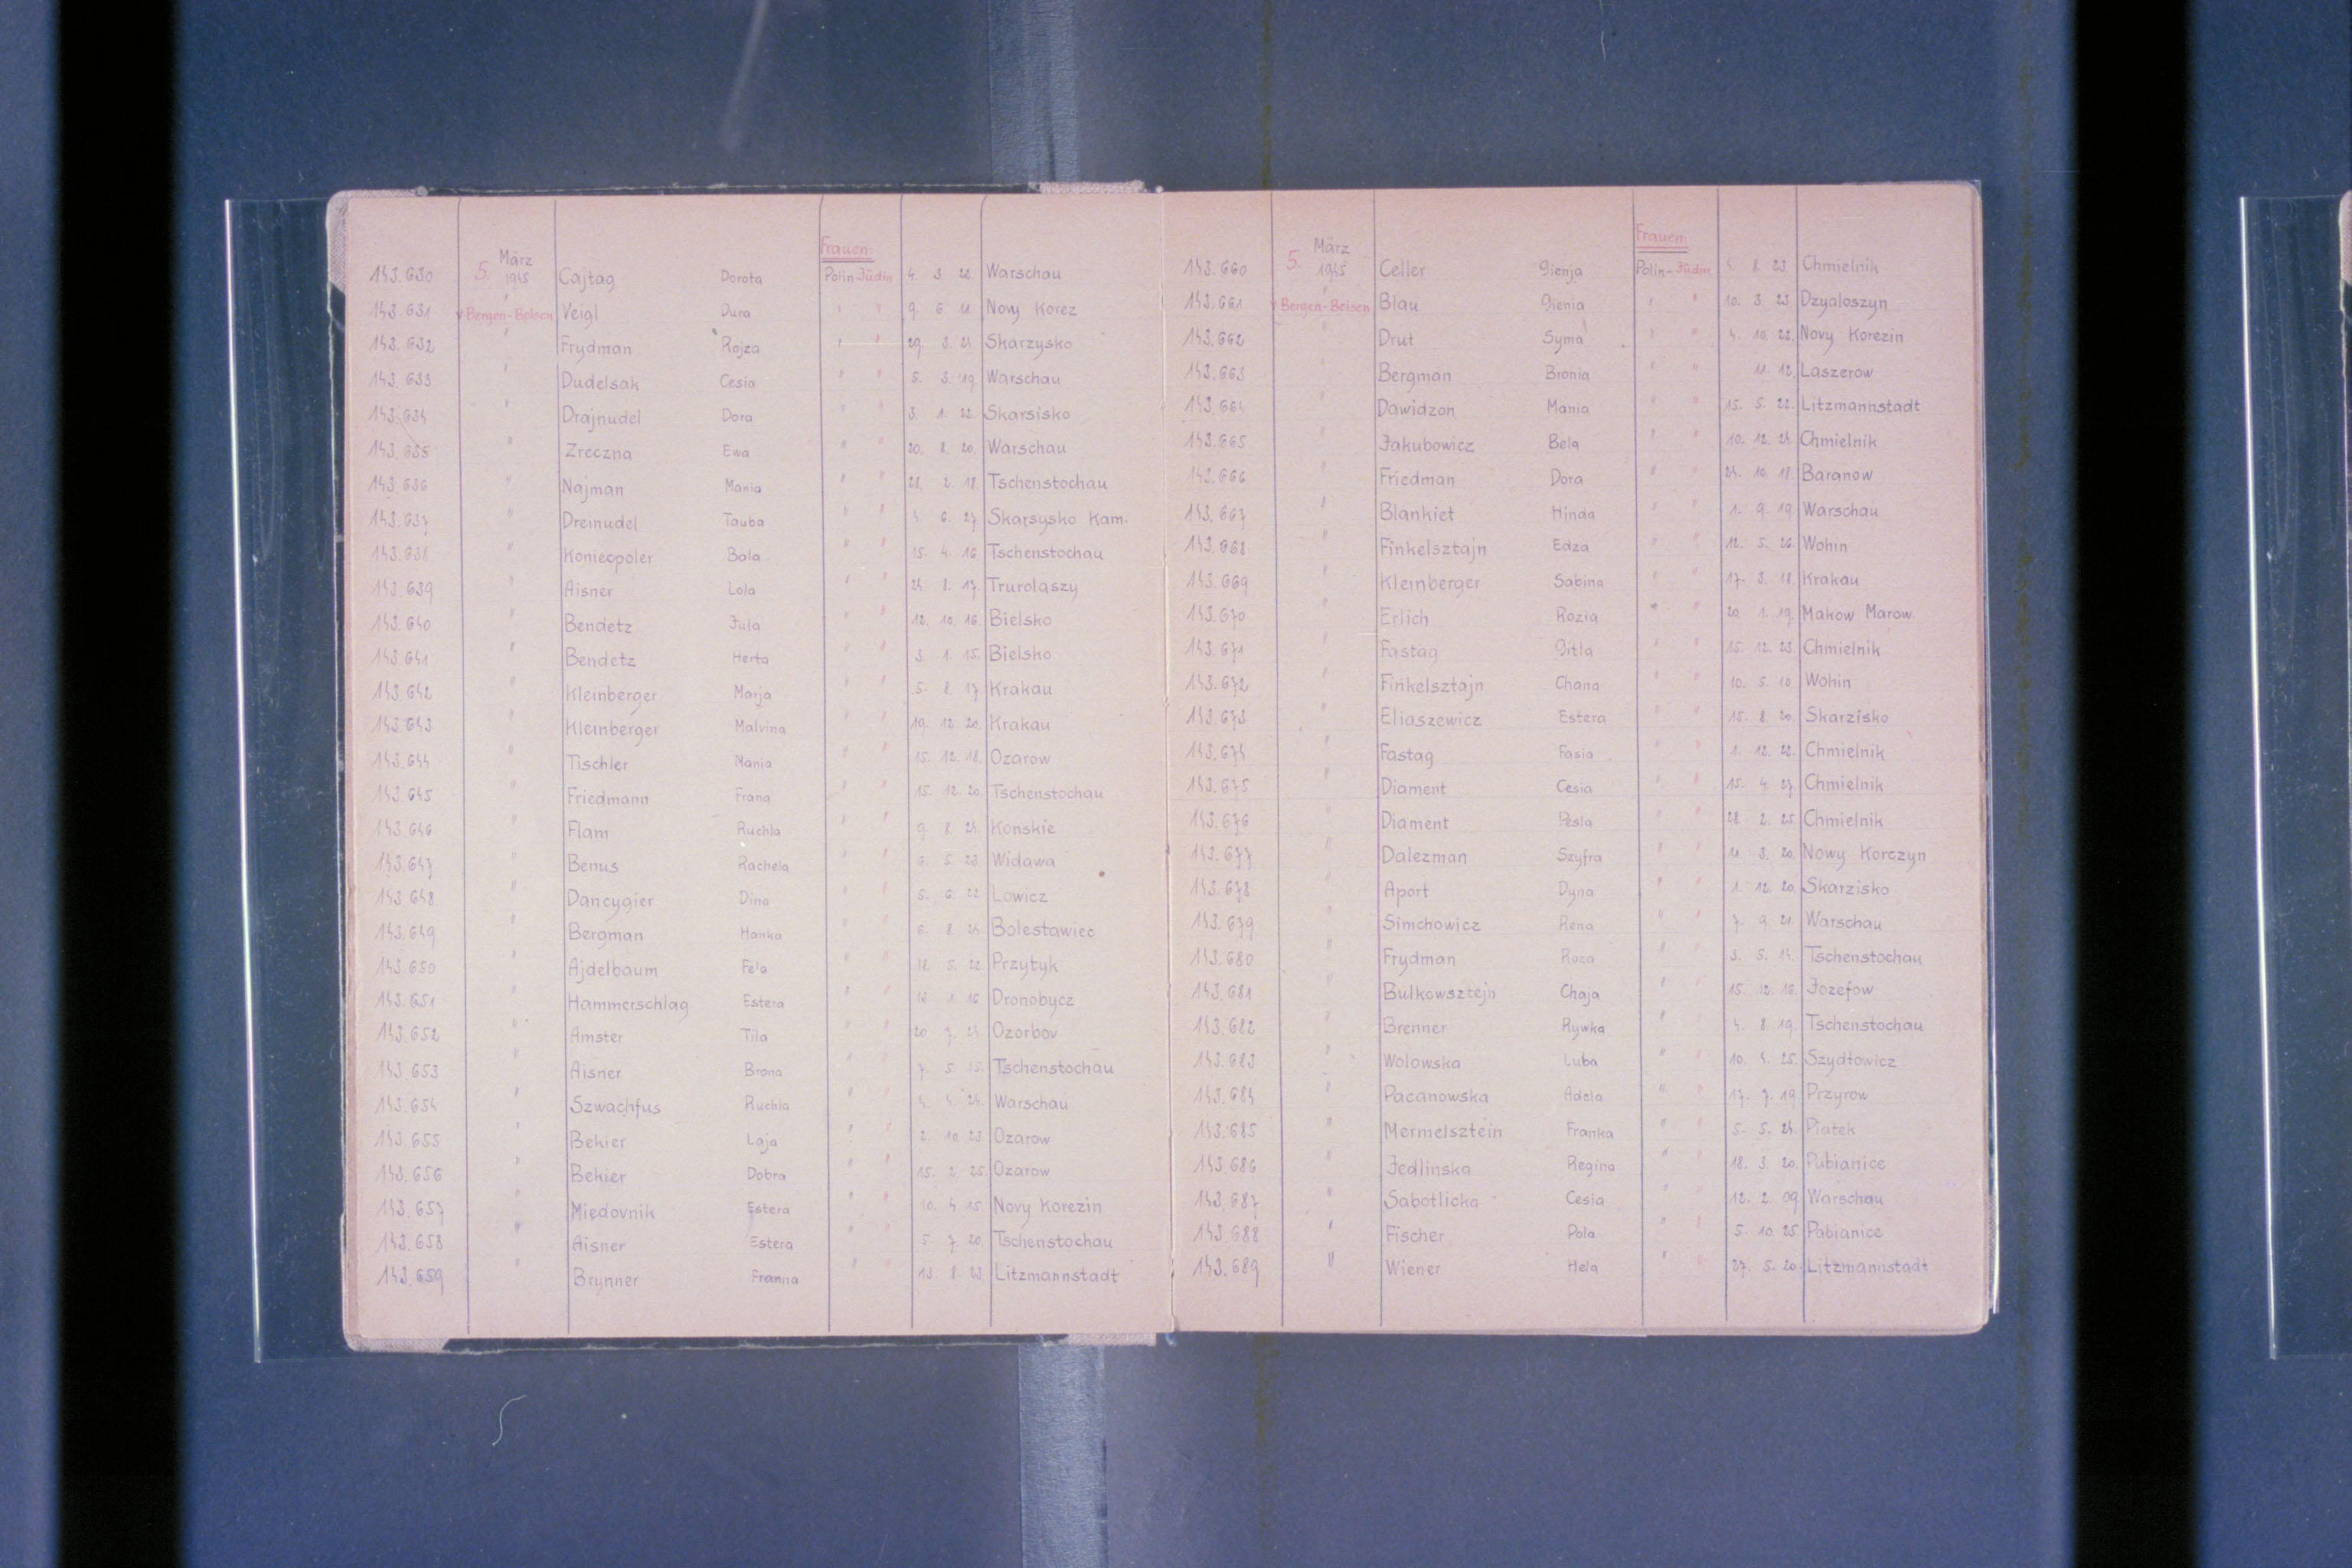 März Frauen:
143.630 5. 1945 Cajtag Dorota Polin Jüdin 4. 3. 22. Warschau
143.631 v. Bergen-Belsen Veigl Dura " " 9. 6. 21. Novy Korez
143.632 " Frydman Rojza " " 29. 3. 21. Skarzysko
143.633 " Dudelsak Cesia " " 5. 3. 19. Warschau
143.634 " Drajnudel Dora " " 3. 1. 22. Skarsisko
143.635 " Zreczna Ewa " " 20. 8. 20. Warschau
143.636 " Najman Mania " " 28. 2. 18. Tschenstochau
143.637 " Dreinudel Tauba " " 4. 6. 27 Skarsysko Kam.
143.638 " Koniecpoler Bala " " 15. 4. 16 Tschenstochau
143.639 " Aisner Lola " " 24. 8. 17. Trurolaszy
143.640 " Bendetz Jula " " 12. 10. 16. Bielsko
143.641 " Bendetz Herta " " 3. 1. 15. Bielsko
143.642 " Kleinberger Marja " " 5. 8. 17. Krakau
143.643 " Kleinberger Malvina " " 19. 12. 20. Krakau
143.644 " Tischler Mania " " 15. 12. 18. Ozarow
143.645 " Friedmann Frana " " 15. 12. 20. Tschenstochau
143.646 " Flam Ruchla " " 9. 8. 24. Konskie
143.647 " Benus Rachela " " 6. 5. 23. Widawa
143.648 " Dancygier Dina " " 5. 6. 22 Lowicz
143.649 " Bergman Hanka " " 6. 8. 24. Bolestawiec
143.650 " Ajdelbaum Fela " " 18. 5. 22. Przytyk
143.651 " Hammerschlag Estera " " 1. 16 Dronobycz
143.652 " Amster Tila " " 20. 7. 24. Ozorbov
143.653 " Aisner Brona " " 7. 5. 15. Tschenstochau
143.654 " Szwachfus Ruchla " " 4. 4. 24. Warschau
143.655 " Bekier Laja " " 2. 10. 23. Ozarow
143.656 " Bekier Dobra " " 15. 2. 25. Ozarow
143.657 " Miedovnik Estera " " 10. 4. 15. Novy Korezin
143.658 " Aisner Estera " " 5. 7. 20. Tschenstochau
143.659 " Brynner Franna " " 13. 8. 23. Litzmannstadt
März Frauen:
143.660 5. 1945 Celler Gienja Polin-Jüdin 8. 23. Chmielnik
143.661 v. Bergen-Belsen Blau Gienia " " 10. 3. 23. Dzyaloszyn
143.662 " Drut Syma " " 4. 10. 22. Novy Korezin
143.663 " Bergman Bronia " " 11. 12. Laszerow
143.664 " Dawidzon Mania " " 15. 5. 22. Litzmannstadt
143.665 " Jakubowicz Bela " " 10. 12. 24. Chmielnik
143.666 " Friedman Dora " " 24. 10. 18. Baranow
143.667 " Blankiet Hinda " " 1. 9. 19. Warschau
143.668 " Finkelsztajn Edza " " 12. 5. 26. Wohin
143.669 " Kleinberger Sabina " " 17. 3. 18. Krakau
143.670 " Erlich Rozia " " 20. 1. 19. Makow Marow.
143.671 " Fastag Gitla " " 15. 12. 23. Chmielnik
143.672 " Finkelsztajn Chana " " 10. 5. 10. Wohin
143.673 " Eliaszewicz Estera " " 15. 8. 20. Skarzisko
143.674 " Fastag Fasia " " 1. 12. 22. Chmielnik
143.675 " Diament Cesia " " 15. 4. 27. Chmielnik
143.676 " Diament Pesla " " 28. 2. 25. Chmielnik
143.677 " Dalezman Szyfra " " 11. 3. 20. Nowy Korczyn
143.678 " Aport Dyna " " 1. 12. 20. Skarzisko
143.679 " Simchowicz Rena " " 7. 9. 21. Warschau
143.680 " Frydman Roza " " 3. 5. 14. Tschenstochau
143.681 " Bulkowsztejn Chaja " " 15. 12. 16. Jozefow
143.682 " Brenner Rywka " " 4. 8. 19. Tschenstochau
143.683 " Wolowska Luba " " 10. 4. 25. Szydtowicz
143.684 " Pacanowska Adela " " 17. 7. 19. Przyrow
143.685 " Mermelsztein Franka " " 5. 5. 24. Piatek
143.686 " Jedlinska Regina " " 18. 3. 20. Pabianice
143.687 " Sabotlicka Cesia " " 12. 2. 09. Warschau
143.688 " Fischer Pola " " 5. 10. 25. Pabianice
143.689 " Wiener Hela " " 27. 5. 20. Litzmannstadt